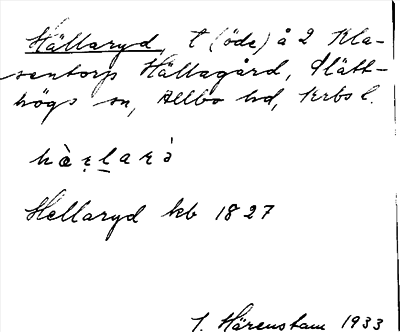 Hällaryd, t (öde) å 2 Kla-
sentorp Hällagård, Slätt-
högs sn, Allbo hd, Krbs l.
Hellaryd kb 1827
J. Härenstam 1933